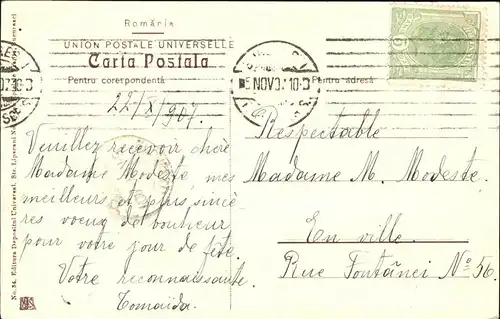 România
UNION POSTALE UNIVERSELLE
Carta Postala
Pentru corespondentă
Pentru adresă
5 NOV 07 10
22/X/907.
Veuillez recevoir chère
Madame Modeste mes
meilleurs et plus sincè
res voeux de bonheur
pour votre jour de fête.
Votre reconnaissante
Tomaida.
Respectable
Madame M. Modeste.
En ville.
Rue Fontânei No 56.
No. 34. Editura Depozitul Universal, Str. Lipscani